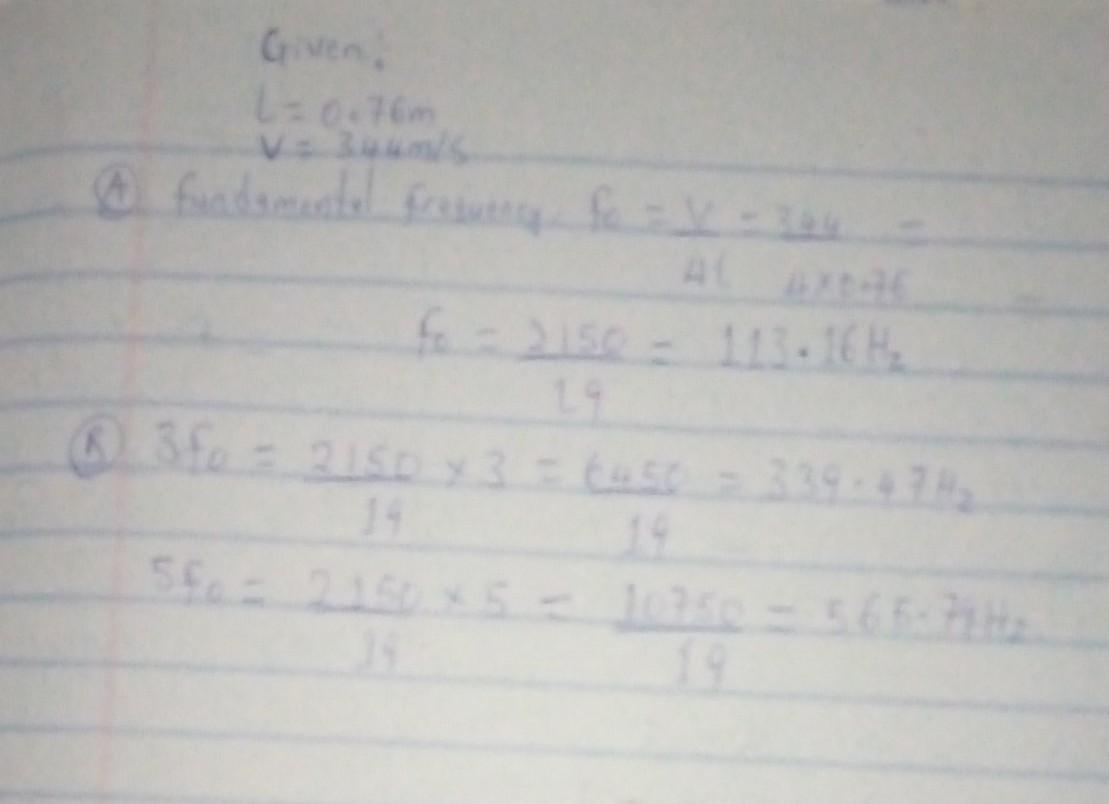 Given:
L = 0.76m
V = 344m/s
(A) fundamental frequency f₀ = V/4L = 344/4×0.76 =
f₀ = 2150/19 = 113.16Hz
(B) 3f₀ = 2150/19 × 3 = 6450/19 = 339.47Hz
5f₀ = 2150/19 × 5 = 10750/19 = 565.79Hz